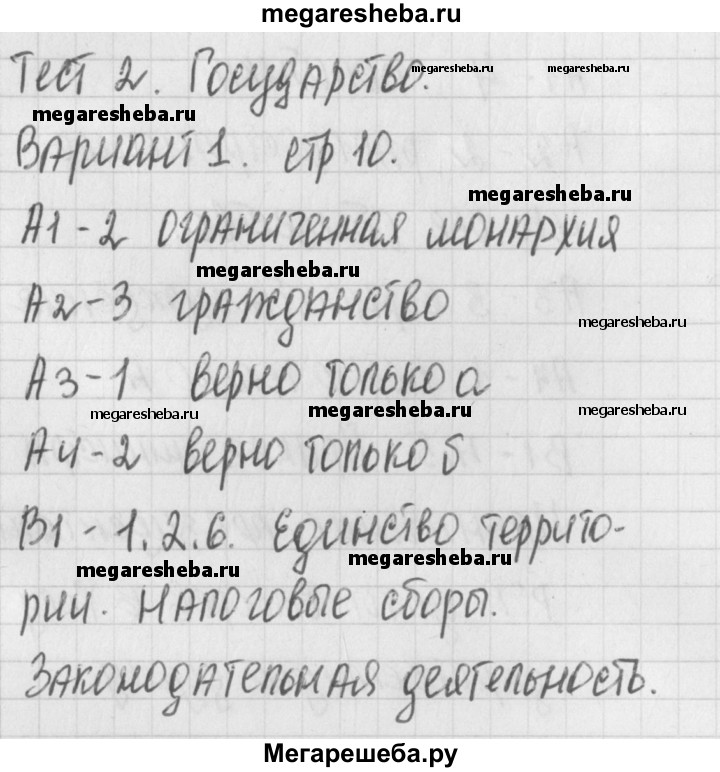 megaresheba.ru
Тест 2. Государство.
megaresheba.ru
megaresheba.ru
megaresheba.ru
Вариант 1. стр 10.
megaresheba.ru
А1-2 ограниченная монархия
megaresheba.ru
А2-3 гражданство
megaresheba.ru
А3-1 верно только а
megaresheba.ru
megaresheba.ru
megaresheba.ru
А4-2 верно только б
В1-1.2.6. Единство террито-
megaresheba.ru
megaresheba.ru
рии. Налоговые сборы.
Законодательная деятельность.
Мегарешеба.ру